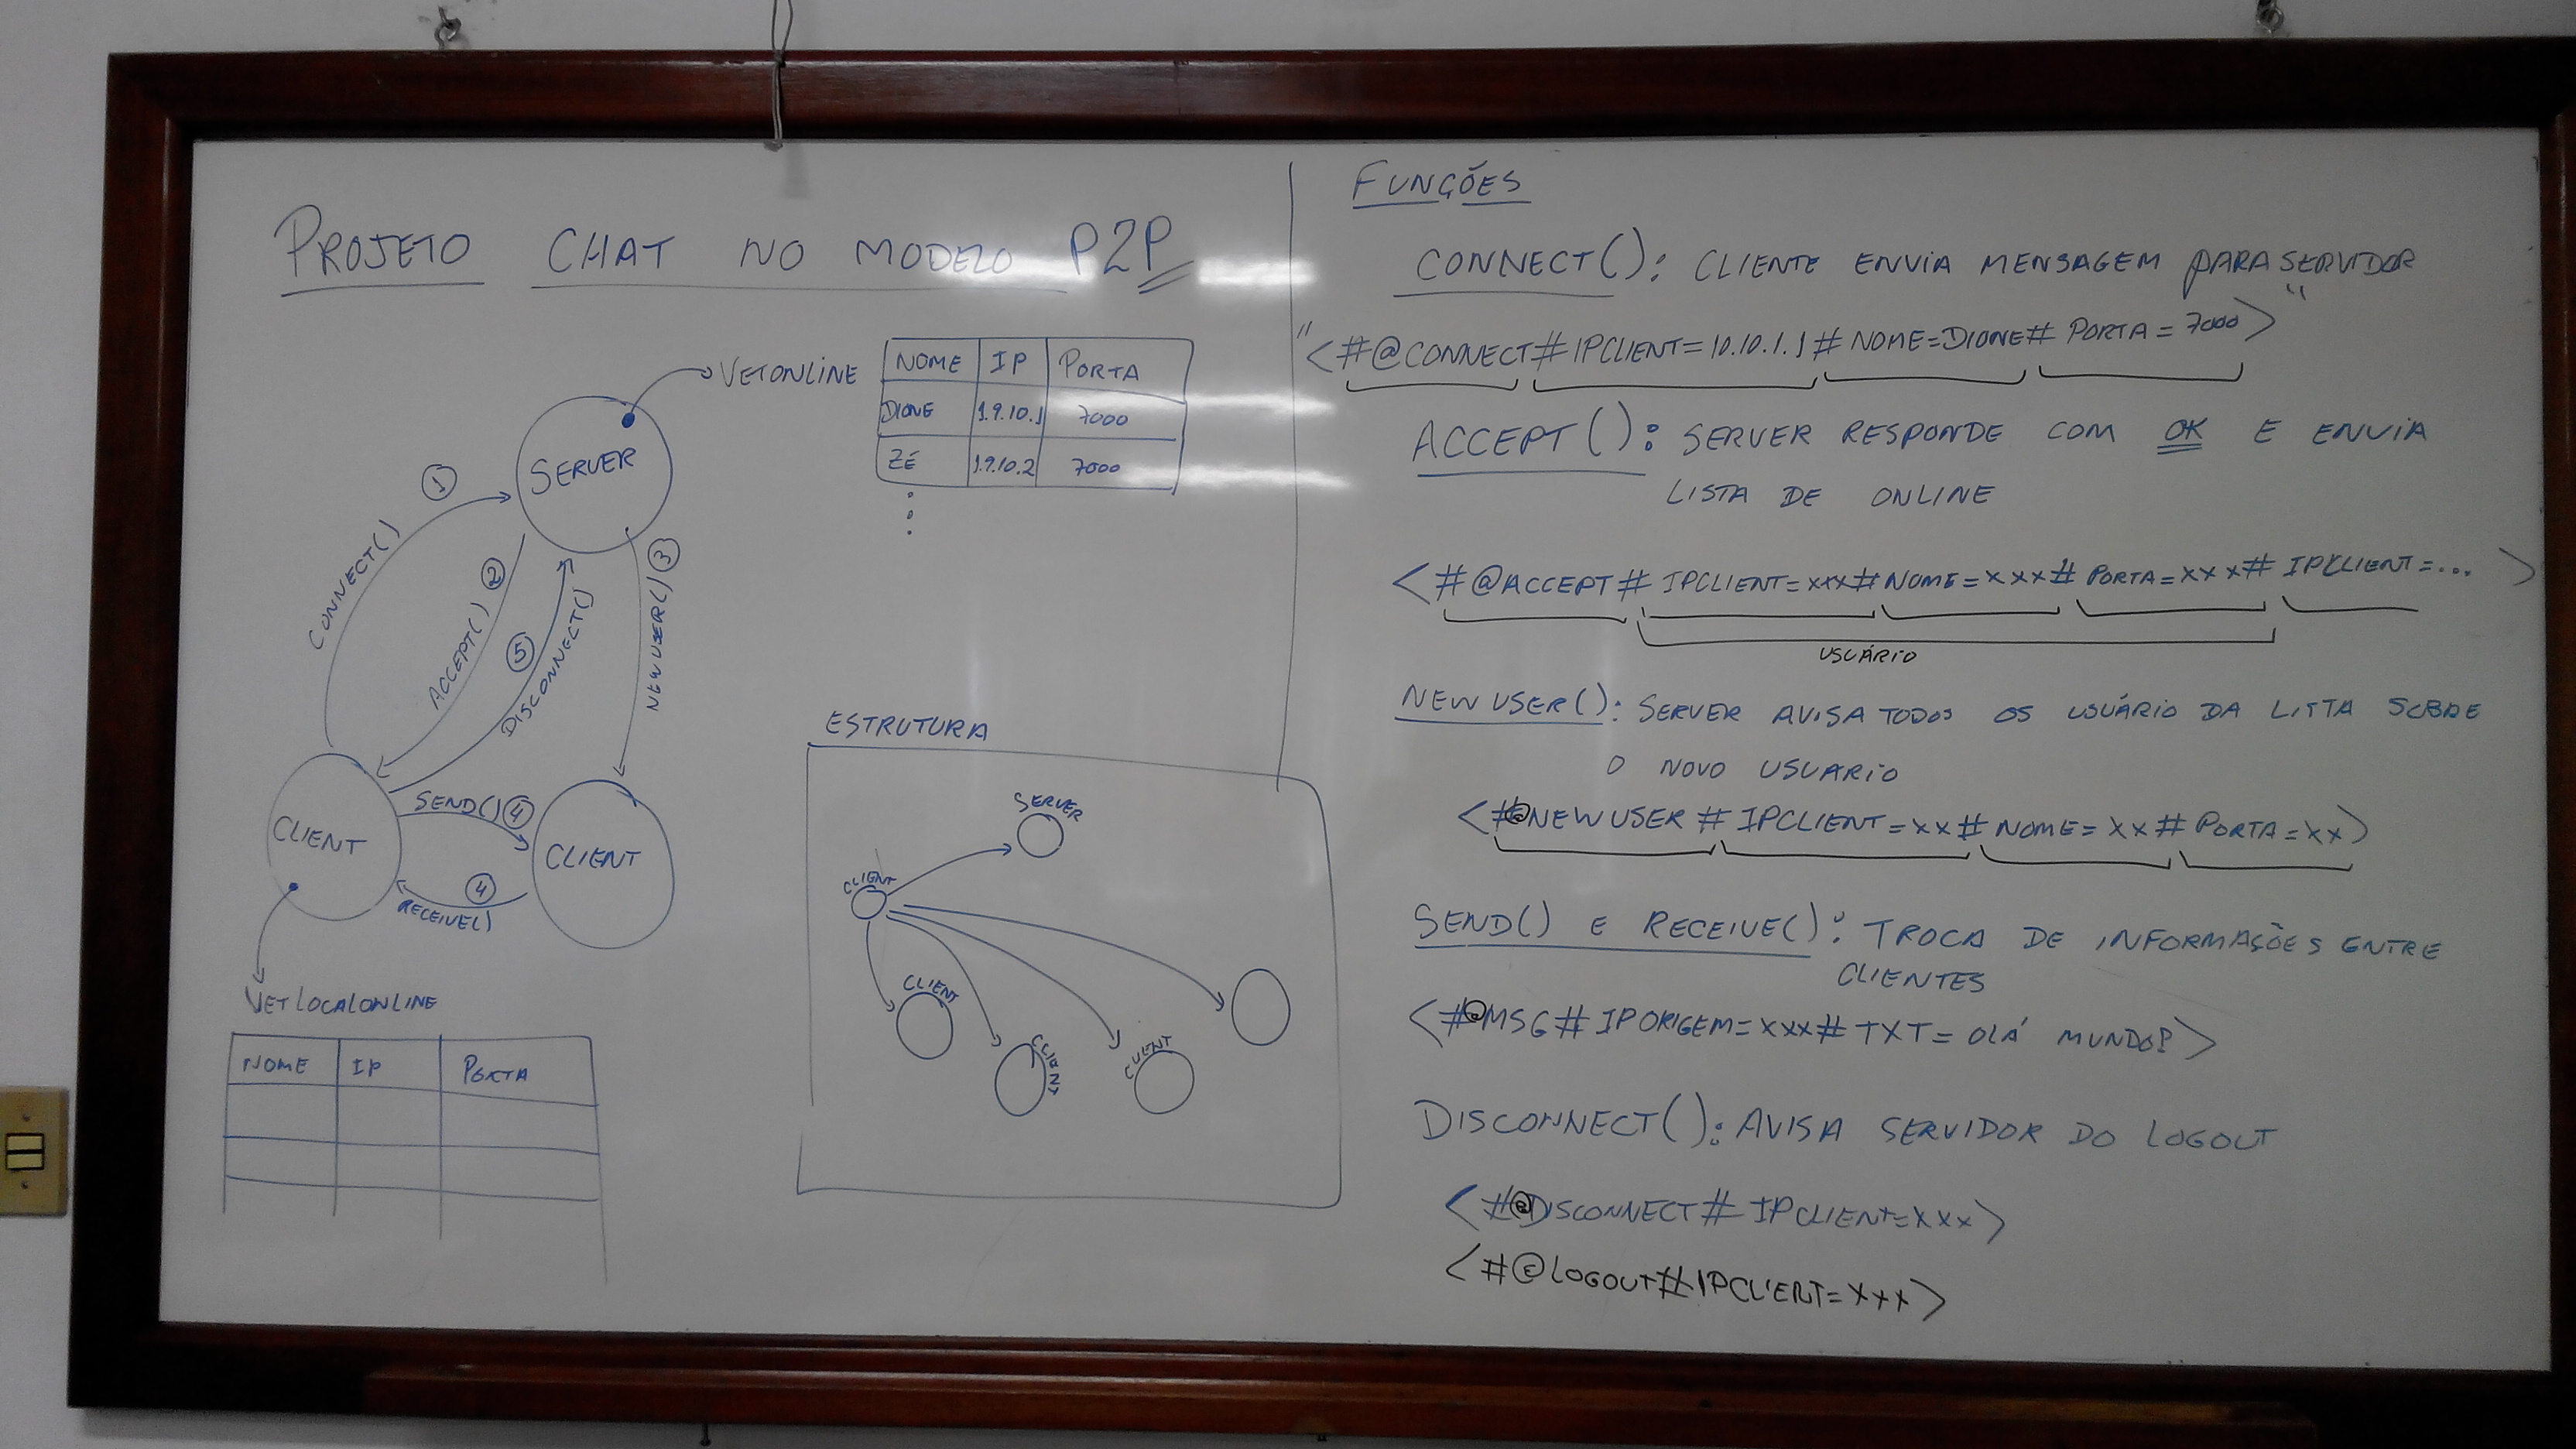 PROJETO CHAT NO MODELO P2P
VETONLINE
NOME IP PORTA
DIONE 1.9.10.1 7000
ZÉ 1.9.10.2 7000
SERVER
1
CONNECT()
ACCEPT() 2
5
DISCONNECT()
NEWUSER() 3
CLIENT
SEND() 4
CLIENT
4
RECEIVE()
VETLOCALONLINE
NOME IP PORTA
ESTRUTURA
SERVER
CLIENT
CLIENT
CLIENT
CLIENT
FUNÇÕES
CONNECT(): CLIENTE ENVIA MENSAGEM PARA SERVIDOR
"<#@CONNECT#IPCLIENT=10.10.1.1#NOME=DIONE#PORTA=7000>"
ACCEPT(): SERVER RESPONDE COM OK E ENVIA
LISTA DE ONLINE
<#@ACCEPT#IPCLIENT=xxx#NOME=xxx#PORTA=xxx#IPCLIENT=...>
USUÁRIO
NEWUSER(): SERVER AVISA TODOS OS USUÁRIO DA LISTA SOBRE
O NOVO USUARIO
<#@NEWUSER#IPCLIENT=xx#NOME=xx#PORTA=xx>
SEND() E RECEIVE(): TROCA DE INFORMAÇÕES ENTRE
CLIENTES
<#@MSG#IPORIGEM=xxx#TXT=OLÁ MUNDO!>
DISCONNECT(): AVISA SERVIDOR DO LOGOUT
<#@DISCONNECT#IPCLIENT=xxx>
<#@LOGOUT#IPCLIENT=xxx>